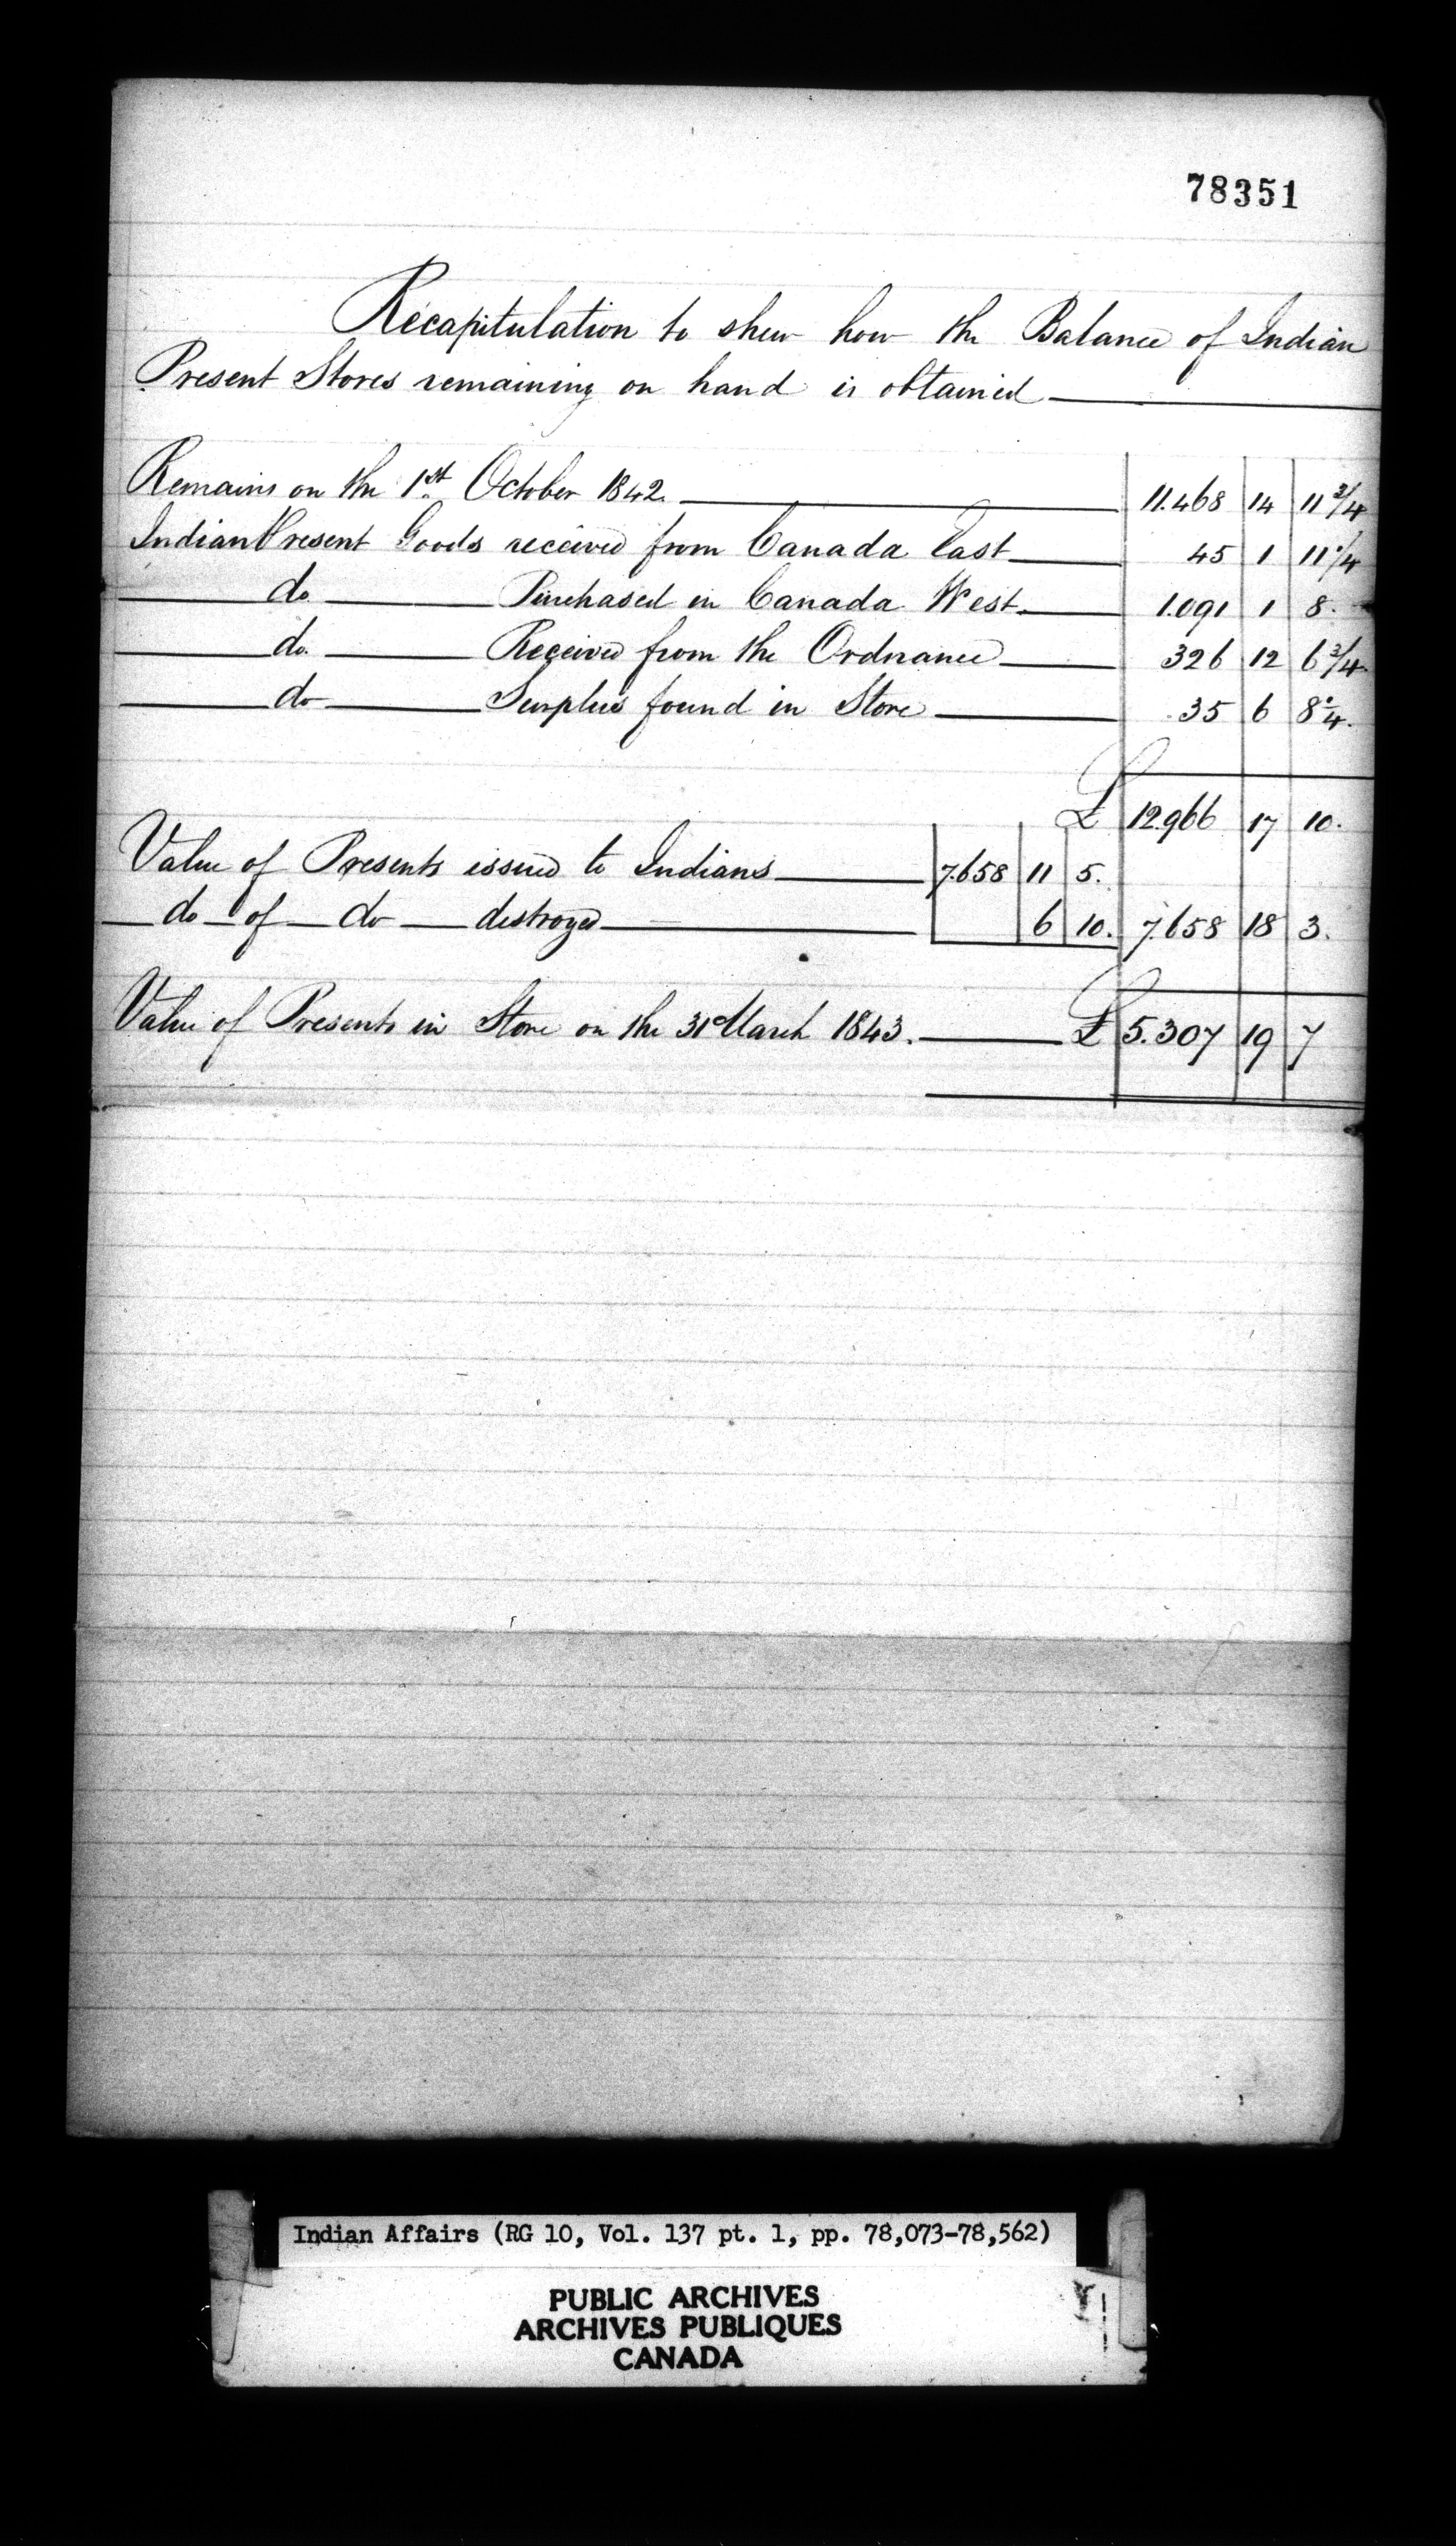 78351
Recapitulation to shew how the Balance of Indian
Present Stores remaining on hand is obtained
Remains on the 1st October 1842. 11.468 14 11 3/4
Indian Present Goods received from Canada East 45 1 11 1/4
do Purchased in Canada West 1.091 1 8.
do. Received from the Ordnance 326 12 6 3/4
do Surplus found in Store 35 6 8 1/4.
£ 12.966 17 10.
Value of Presents issued to Indians 7.658 11 5.
do of do destroyed 6 10. 7.658 18 3.
Value of Presents in Store on the 31st March 1843. £ 5.307 19 7
Indian Affairs (RG 10, Vol. 137 pt. 1, pp. 78,073-78,562)
PUBLIC ARCHIVES
ARCHIVES PUBLIQUES
CANADA